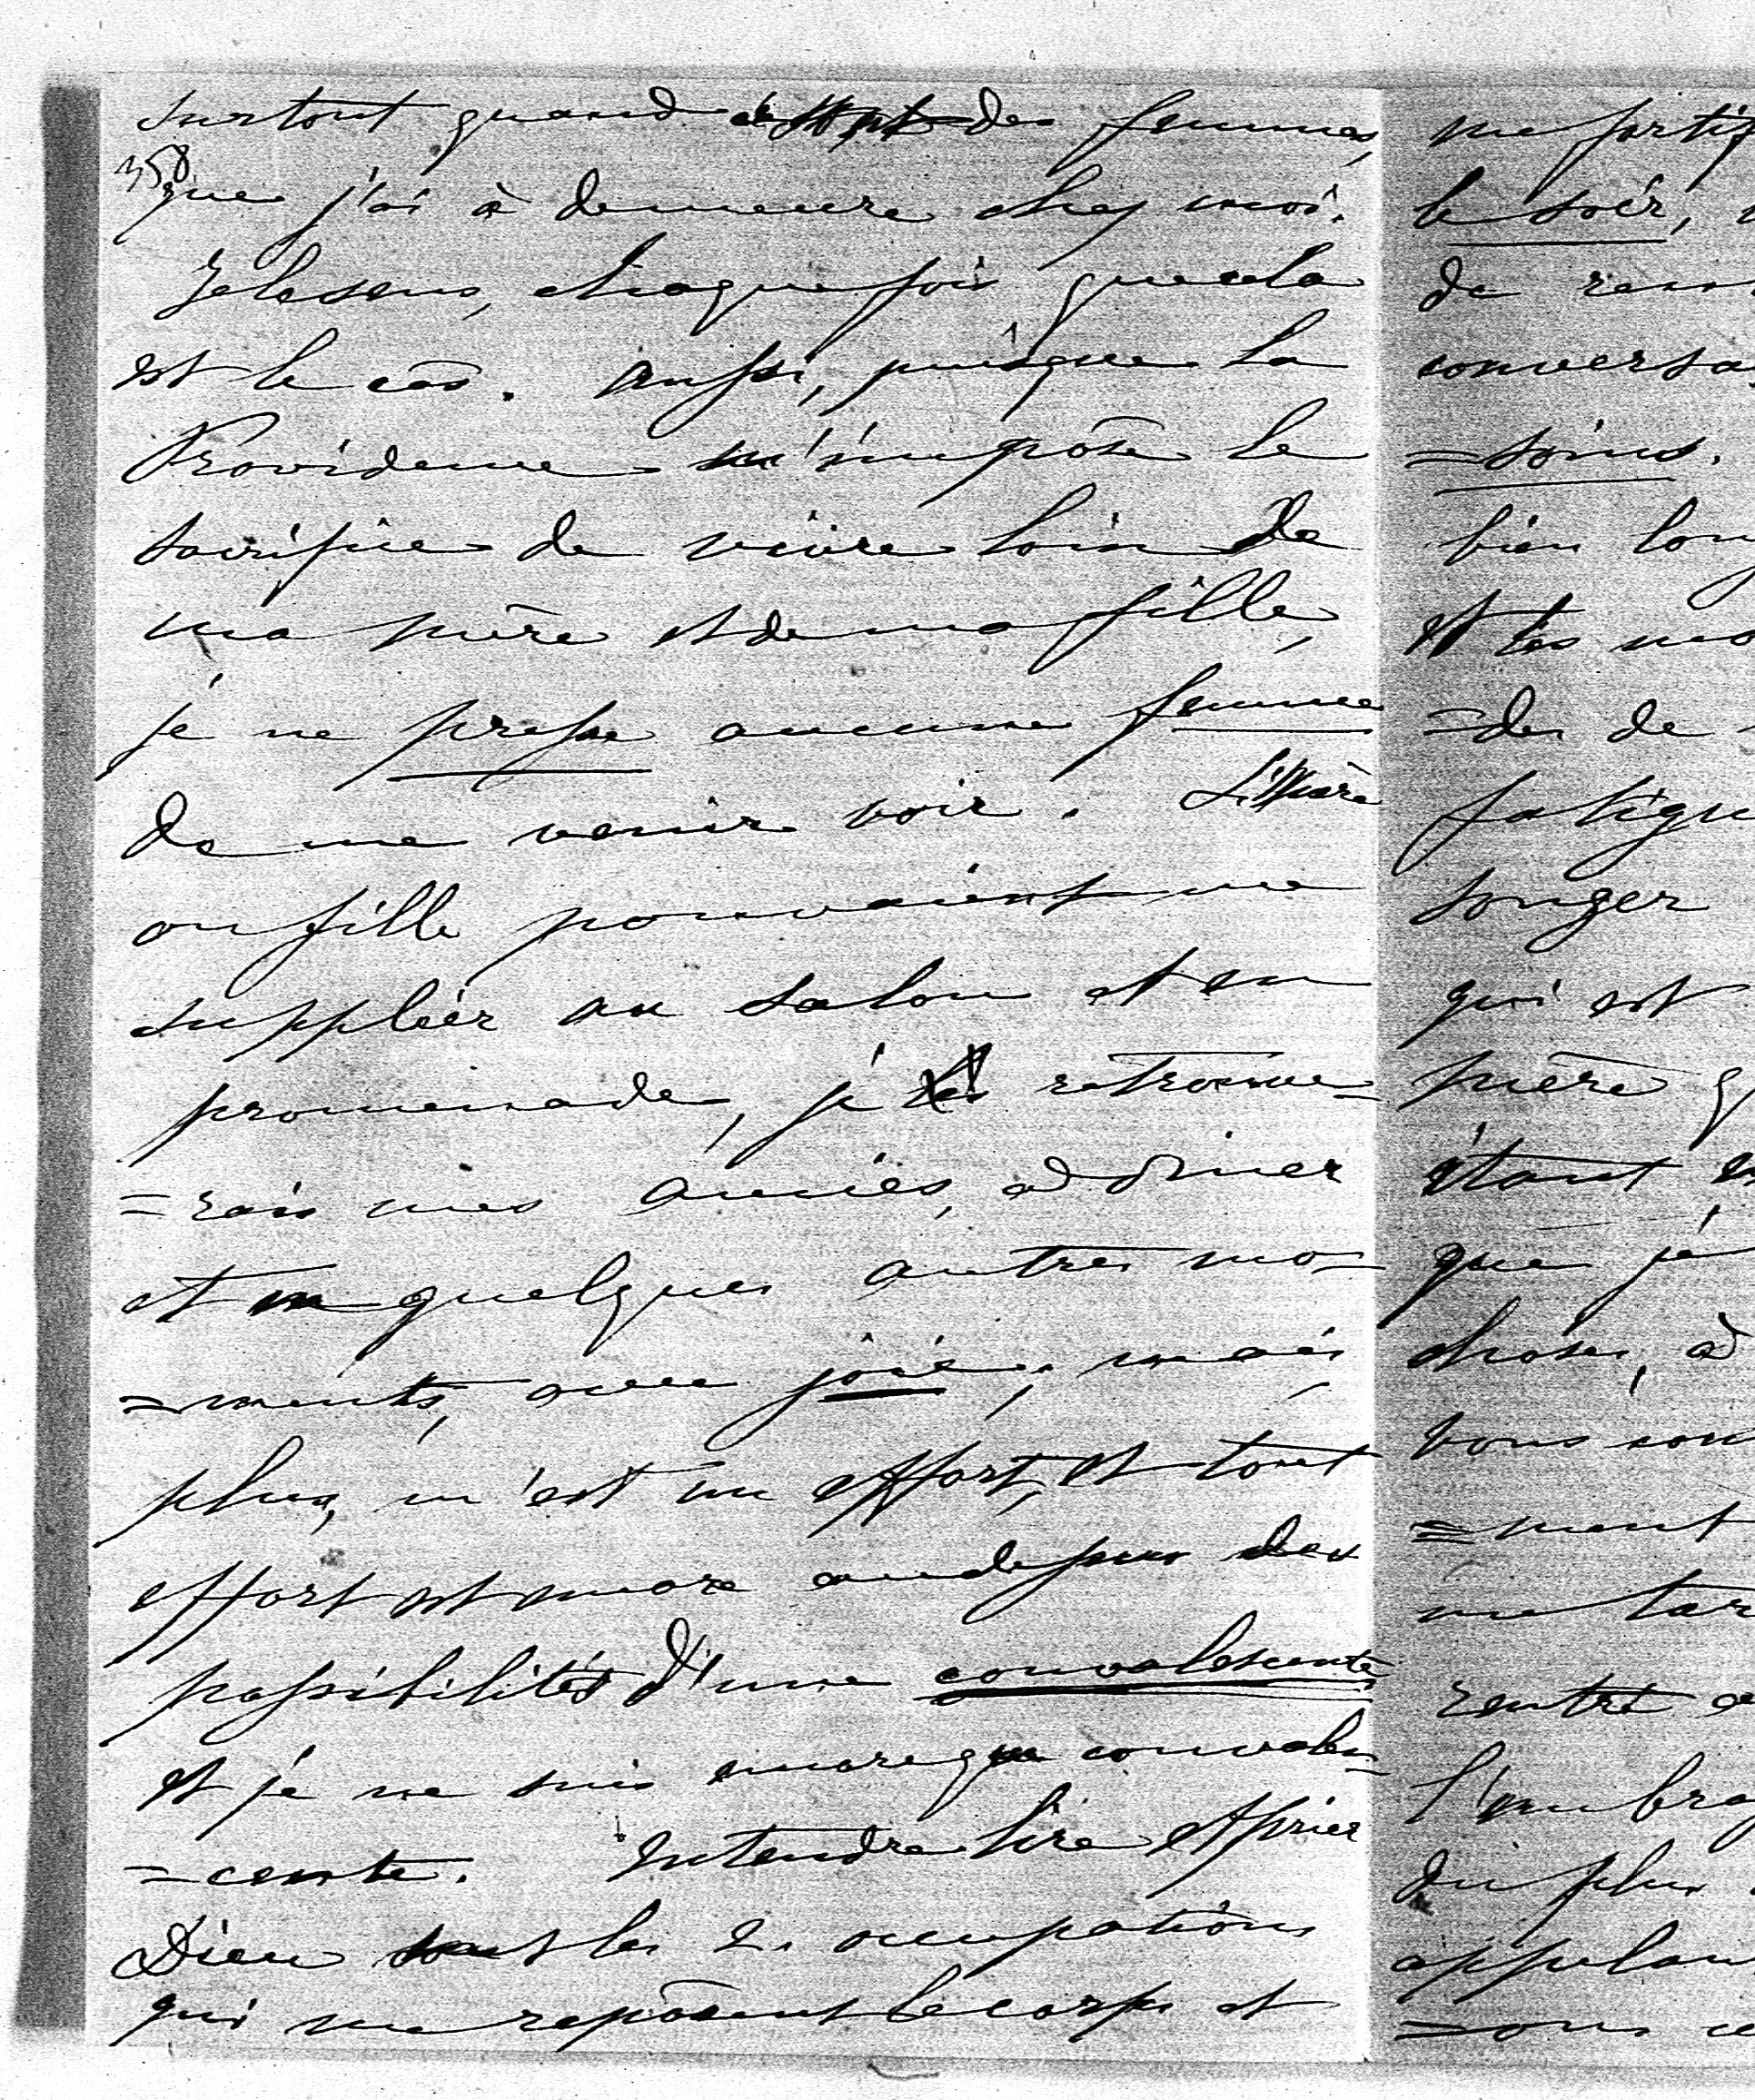 surtout quand ce sont des femmes,
358
que j'ai à demeure chez moi.
Je le sens, chaque fois que cela
est le cas. Aussi, puisque la
Providence m'impose le
sacrifice de vivre loin de
ma mère et de ma fille,
je ne presse aucune femme
de me venir voir. Si Mère
ou fille pouvaient me
suppléer au salon et en
promenade, je les retrouve=
=rais mes amies, à dîner
et en quelques autres mo=
=ments, avec joie; mais
plus, m'est un effort, et tout
effort est encore au dessus des
possibilités d'une convalescente
et je ne suis encore que convales=
=cente. Entendre lire et prier
Dieu sont les 2 occupations
qui me reposent le corps et
me fortif
le soir,
de
conversa
=soins.
bien
et les
=des de
fatigu
songer
qui est
mère
étant
que je
choses, à
vous
=ment
me tar
rentré
l'embra
du plus
appelan